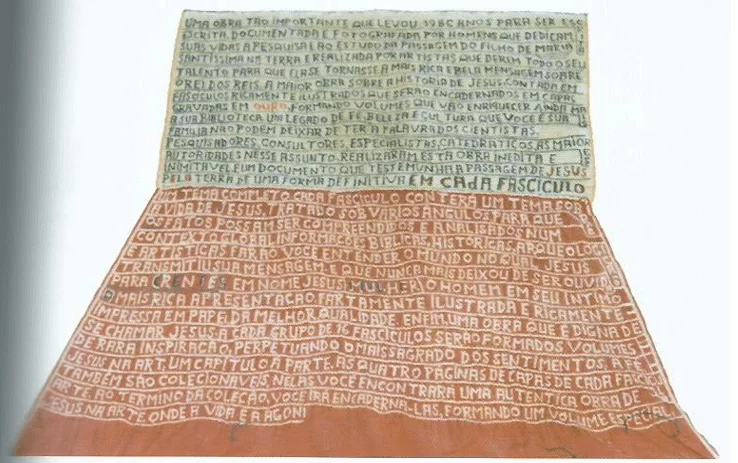 UMA OBRA TÃO IMPORTANTE QUE LEVOU 1986 ANOS PARA SER ESC
ESCRITA, DOCUMENTADA E FOTOGRAFADA POR HOMENS QUE DEDICAM
SUAS VIDAS A PESQUISA E AO ESTUDO DA PASSAGEM DO FILHO DE MARIA
SANTISSIMA NA TERRA E REALIZADA POR ARTISTAS QUE DEREM TODO O SEU
TALENTO PARA QUE ELA SE TORNASSE A MAIS RICA E BELA MENSAGEM SOBRE
O REI DOS REIS. A MAIOR OBRA SOBRE A HISTORIA DE JESUS. CONTADA EM
FASCICULOS RICAMENTE ILUSTRADOS QUE SERÃO ENCADERNADOS EM CAPAS
GRAVADAS EM OURO, FORMANDO VOLUMES QUE VÃO ENRIQUECER AINDA MA
A SUA BIBLIOTECA. UM LEGADO DE FÉ, BELEZA E CULTURA QUE VOCE E SUA
FAMILIA NÃO PODEM DEIXAR DE TER A PALAVRA DOS CIENTISTAS,
PESQUISADORES, CONSULTORES, ESPECIALISTAS, CATEDRATICOS, AS MAIOR
AUTORIDADES NESSE ASSUNTO. REALIZARAM ESTA OBRA INEDITA E
INIMITAVEL E UM DOCUMENTO QUE TESTEMUNHA A PASSAGEM DE JESUS
PELA TERRA DE UMA FORMA DEFINITIVA EM CADA FASCICULO
TEMA COMPLETO CADA FASCICULO CONTERÁ UM TEMA
A VIDA DE JESUS, TRATADO SOB VARIOS ANGULOS PARA QUE
OS FATOS POSSAM SER COMPREENDIDOS E ANALISADOS NUM
CONTEXTO GLOBAL INFORMAÇÕES BIBLICAS, HISTORICAS, ARQUEOLO
E ARTISTICAS FARÃO VOCE ENTENDER O MUNDO NO QUAL JESUS
TRANSMITIU A MENSAGEM E QUE NUNCA MAIS DEIXOU DE SER OUVIDA
PARA CRENTES EM NOME JESUS O HOMEM EM SEU INTIMO
A MAIS RICA APRESENTAÇÃO FARTAMENTE ILUSTRADA E RICAMENTE
IMPRESSA EM PAPEL DA MELHOR QUALIDADE. ENFIM, UMA OBRA QUE É DIGNA DE
SE CHAMAR JESUS. A CADA GRUPO DE 16 FASCICULOS SERÃO FORMADOS VOLUMES
DE RARA INSPIRAÇÃO, PERPETUANDO O MAIS SAGRADO DOS SENTIMENTOS, A FÉ
JESUS NA ART. UM CAPITULO A PARTE. AS QUATRO PÁGINAS DE CAPAS DE CADA FASCIC
TAMBEM SÃO COLECIONAVEIS NELAS, VOCE ENCONTRARA UMA AUTENTICA OBRA DE
ARTE AO TERMINO DA COLEÇÃO, VOCE IRA ENCADERNA-LAS, FORMANDO UM VOLUME ESPECIAL
JESUS NA ARTE ONDE A VIDA E A AGONI